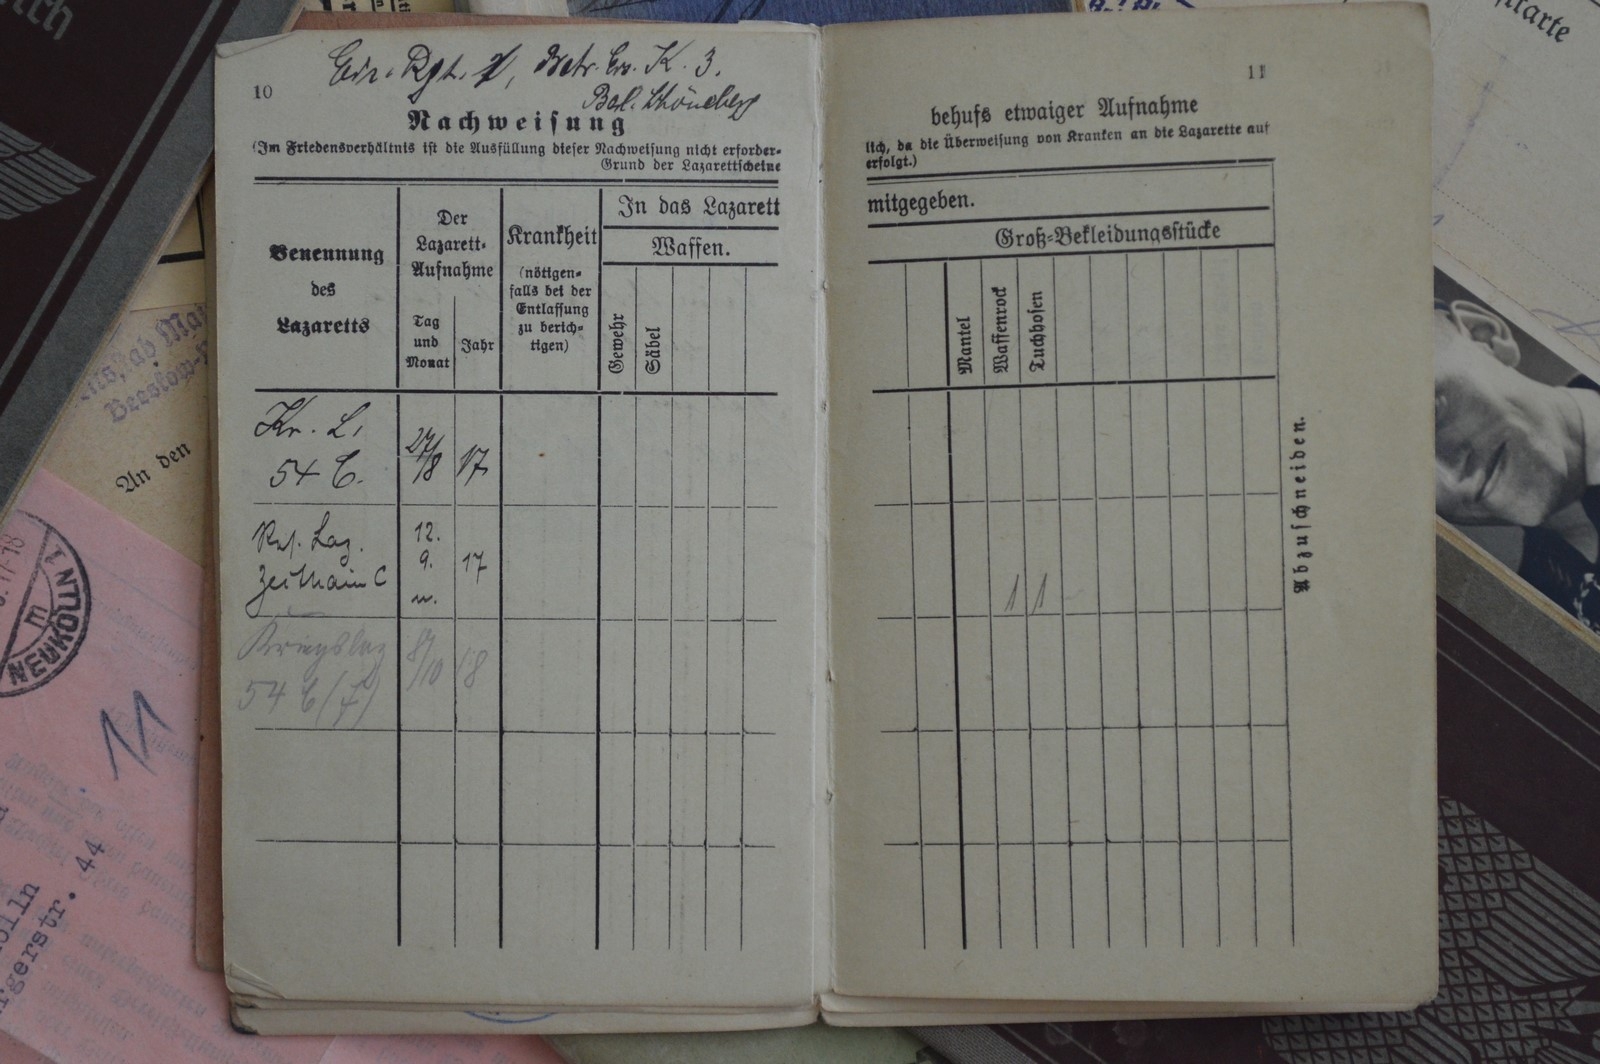 10
Nachweisung
(Im Friedensverhältnis ist die Ausfüllung dieser Nachweisung nicht erforder-
Grund der Lazarettscheine
Benennung
des
Lazaretts
Der
Lazarett-
Aufnahme
Tag
und
Monat
Jahr
Krankheit
(nötigen-
falls bei der
Entlassung
zu berich-
tigen)
In das Lazarett
Waffen.
Gewehr
Säbel
Kr. L.
54 C.
27/8
17
Res. Laz.
Zeithain C
12.
9.
17
Kriegslaz
54 C (F)
8/10
18
11
behufs etwaiger Aufnahme
lich, da die Überweisung von Kranken an die Lazarette auf
erfolgt.)
mitgegeben.
Groß-Bekleidungsstücke
Mantel
Waffenrock
Tuchhosen
1 1
Abzuschneiden.
An den
NEUKÖLLN
11
44